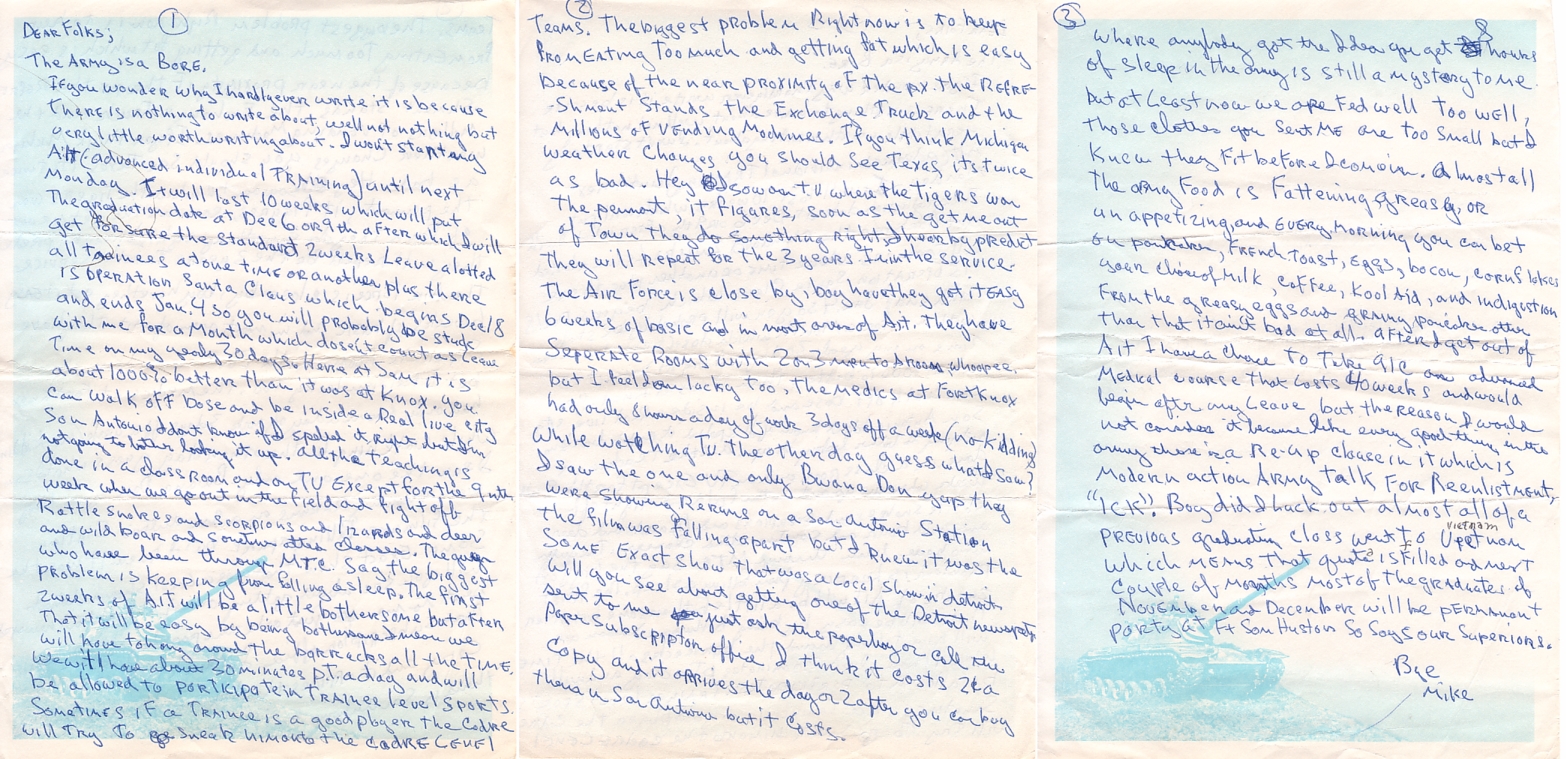 1
DEAR Folks;
The ARmy is a BORE.
If you wonder why I hardly ever write it is because
there is nothing to write about, well not nothing but
very little worth writing about. I wont start my
Ait (advanced individual TRAINING) until next
Monday. It will last 10 weeks which will put
The graduation date at Dec 6 or 9th after which I will
get for sure the standard 2 weeks Leave alotted
all Trainees at one TIME OR another plus there
is OPERATION Santa Claus which begins Dec 18
and ends Jan. 4 so you will probably be stuck
with me for a Month which doesn't count as Leave
Time on my yearly 30 days. Here at Sam it is
about 1000% better than it was at Knox. you
can walk off base and be inside a Real live city
San Antonio I dont know if I spelled it right but I'm
not going to bother looking it up. All the teaching is
done in a class room and on TV Except for the 9nth
week when we go out in the field and fight off
Rattle snakes and scorpions and lizards and deer
and wild boar and sometimes attend classes. The guys
who have been through M.T.C. Say the biggest
problem is keeping from falling asleep. The first
2 weeks of Ait will be a little bothersome but after
That it will be easy by being bothersome I mean we
will have to hang around the barracks all the TIME.
We will have about 30 minutes P.T. a day and will
be allowed to participate in TRAINEE level SPORTS.
Sometimes if a TRAINEE is a good player the CadRE
will Try To sneak him onto the cadRE LEVEL
2
Teams. The biggest problem Right now is to keep
from EATing Too much and getting fat which is easy
because of the near proximity of The px. the REFRE
-Shment Stands the Exchange Truck and the
Millions of Vending Machines. If you think Michigan
weather Changes you should See Texas, its twice
as bad. Hey I saw on TV where the Tigers won
the pennant, it figures, soon as the get me out
of Town they do something Right. I hearby predict
They will repeat for the 3 years I'm in the service.
The Air Force is close by, boy have they got it EASY
6 weeks of basic and in most areas of Ait. They have
Seperate Rooms with 2 or 3 men to a room, whoopee.
but I feel lucky too, the Medics at Fort Knox
had only 8 hours a day of work 3 days off a week (no kidding)
While watching TV. the other day guess what I saw?
I saw the one and only Bwana Don yaps they
were showing Reruns on a San Antonio Station
the film was falling apart but I knew it was the
SOME Exact show that was a Local show in detroit.
Will you see about getting one of the Detroit newspapers
sent to me just ask the paperboy or call the
Paper Subscription office I think it costs 2¢ a
Copy and it arrives the day or 2 after you can buy
them in San Antonio but it costs.
3
where anybody got the Idea you get 8 hours
of sleep in the army is still a mystery to me.
but at Least now we are Fed well Too well,
those clothes you sent ME are too Small but I
Know they Fit before I come in. Almost all
The army Food is Fattening, greasey, or
un appetizing, and EVERY morning you can bet
on pancakes, FRENCH Toast, Eggs, bacon, cornflakes
your choice of Milk, coffee, Kool Aid, and indigestion
From the greasy eggs and grainy pancakes other
than that it ain't bad at all. After I get out of
Ait I have a choice to Take 91C an advanced
Medical course that lasts 40 weeks and would
begin after my Leave but the reason I would
not consider it because like every good thing in the
army there is a Re-Up clause in it which is
Modern action Army Talk FOR Reenlistment,
"ICK". Boy did I luck out almost all of a
vietnam
previous graduating class went to Vietnam
which MEANS That quota is filled and next
Couple of months most of the graduates of
November and December will be permanent
party at Ft Sam Huston So Says our Superiors.
Bye
Mike